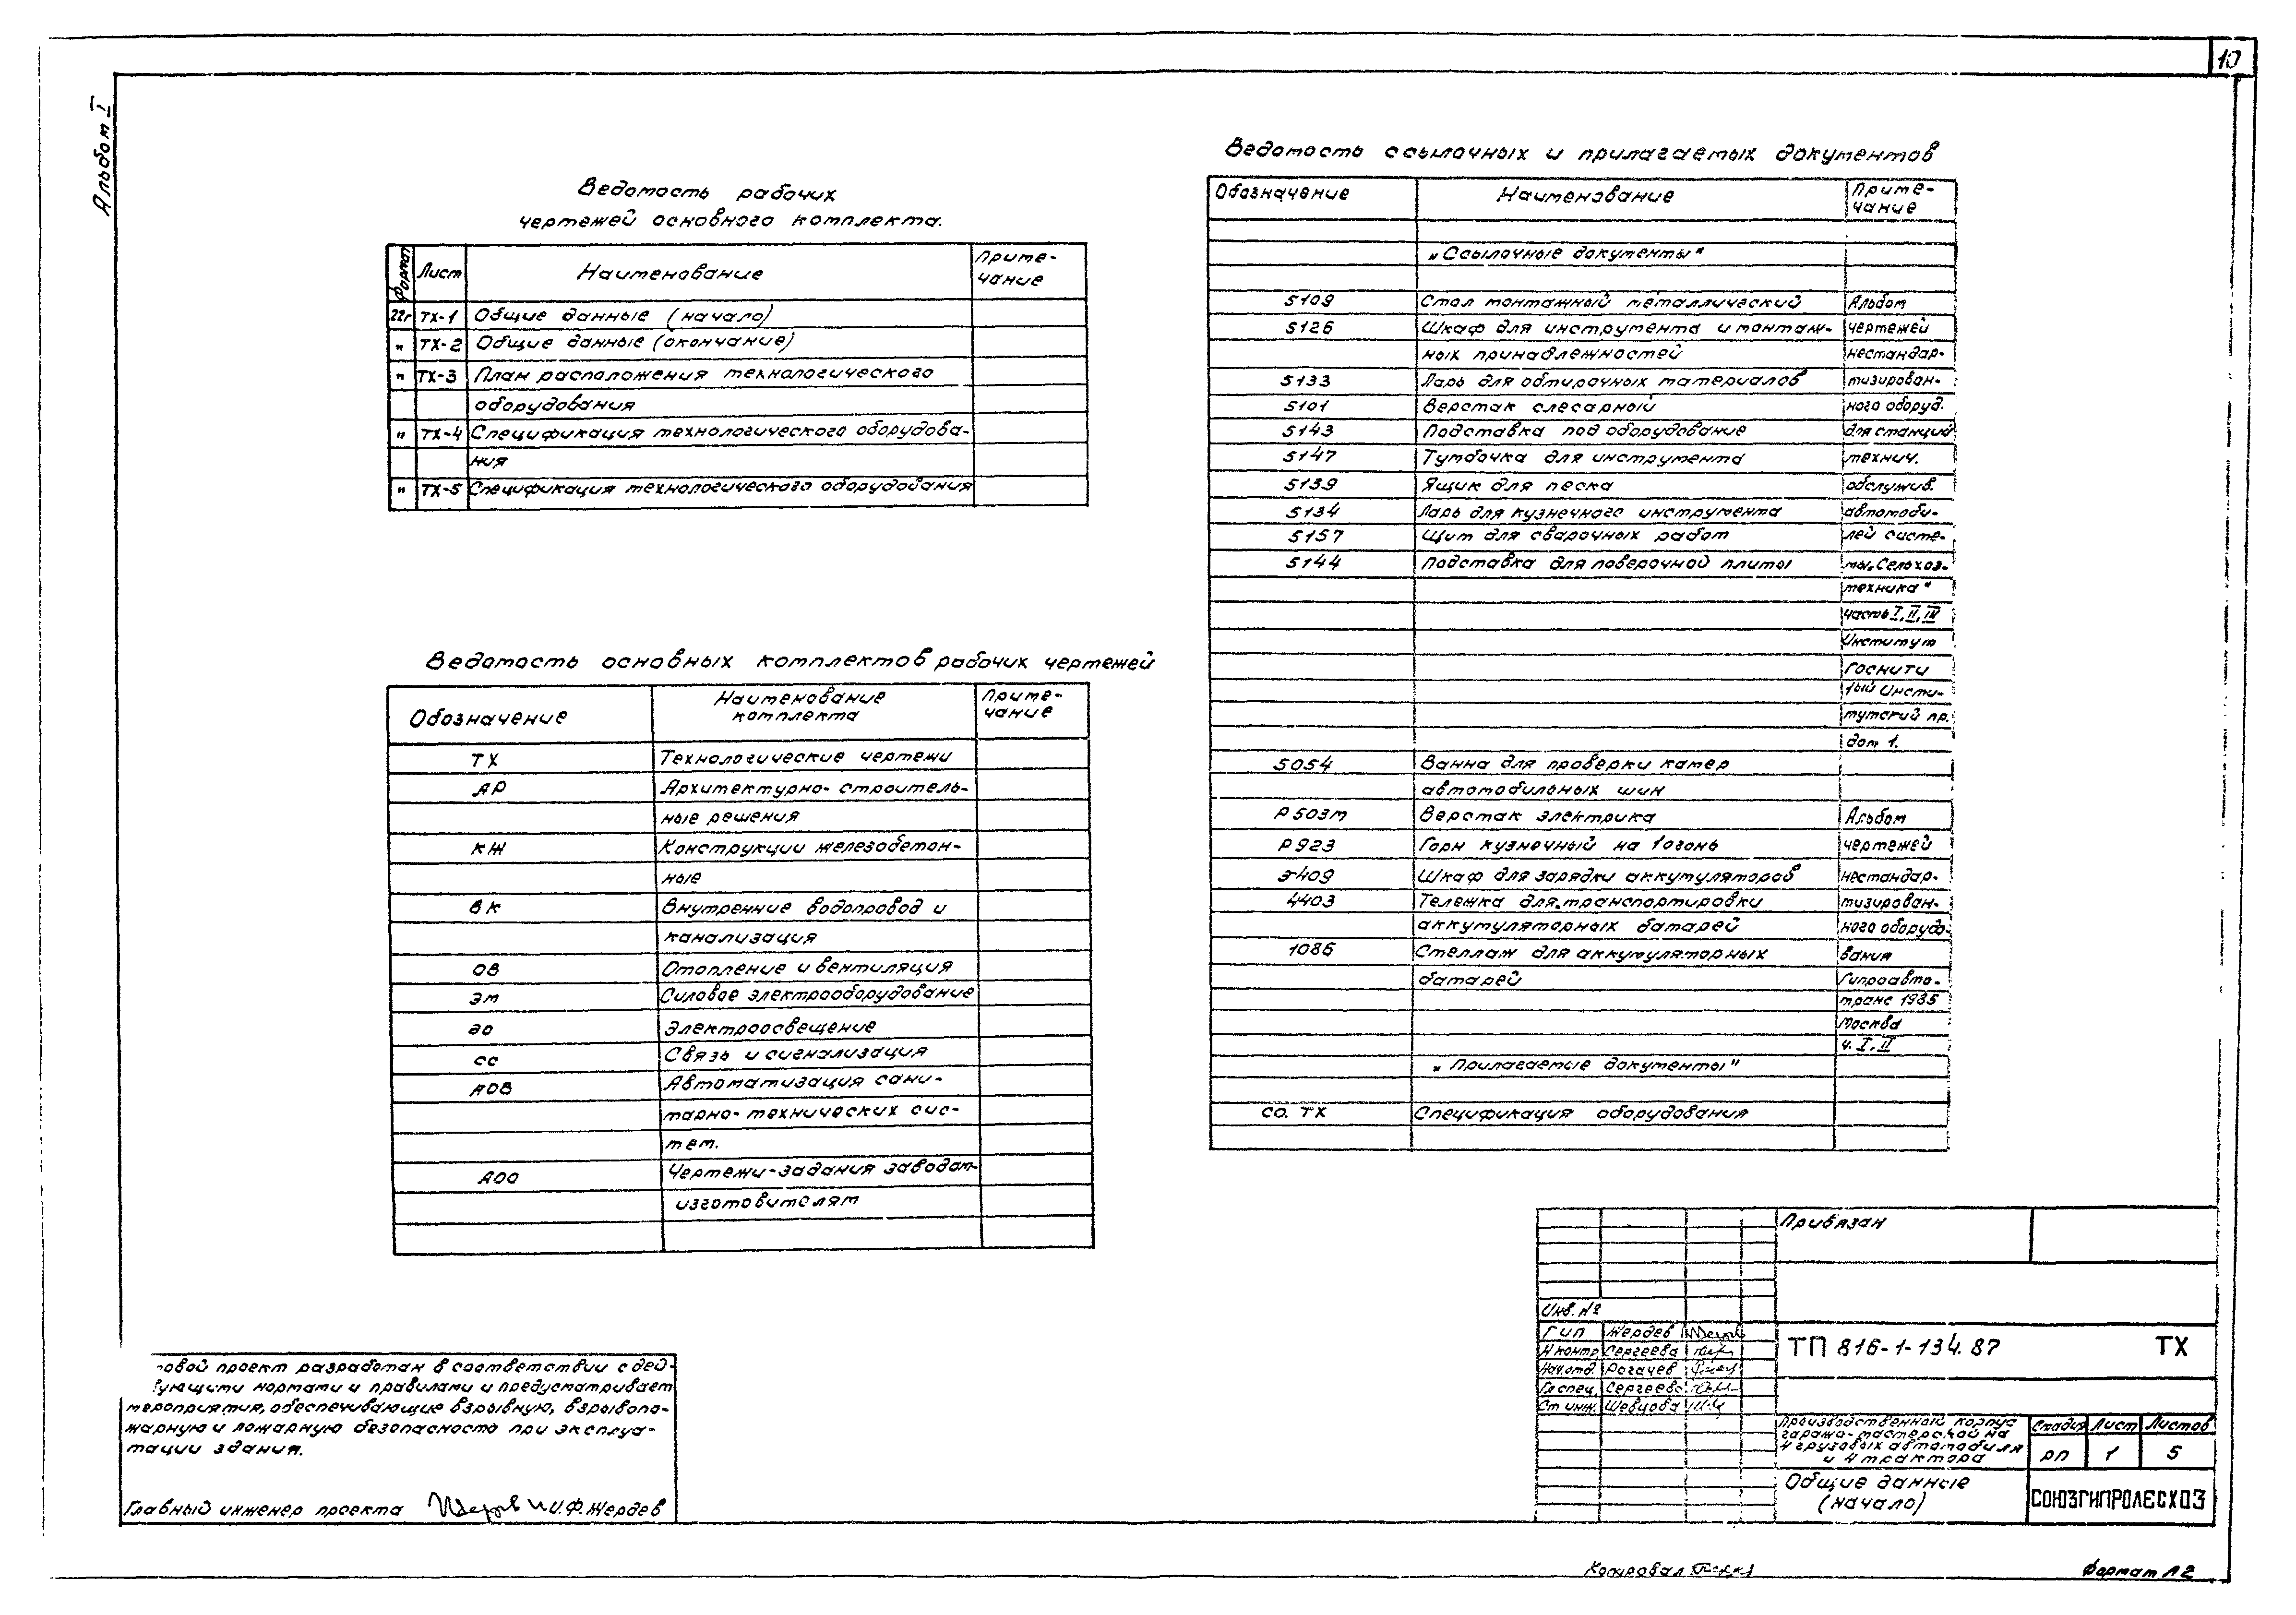 10
Альбом I
Ведомость рабочих
чертежей основного комплекта.
Формат Лист Наименование Приме-
чание
22г ТХ-1 Общие данные (начало)
" ТХ-2 Общие данные (окончание)
" ТХ-3 План расположения технологического
оборудования
" ТХ-4 Спецификация технологического оборудова-
ния
" ТХ-5 Спецификация технологического оборудования
Ведомость основных комплектов рабочих чертежей
Обозначение Наименование
комплекта Приме-
чание
ТХ Технологические чертежи
АР Архитектурно-строитель-
ные решения
КЖ Конструкции железобетон-
ные
ВК Внутренние водопровод и
канализация
ОВ Отопление и вентиляция
ЭМ Силовое электрооборудование
ЭО Электроосвещение
СС Связь и сигнализация
АОВ Автоматизация сани-
тарно-технических сис-
тем.
АОО Чертежи-задания заводам-
изготовителям
Ведомость ссылочных и прилагаемых документов
Обозначение Наименование Приме-
чание
„Ссылочные документы"
5109 Стол монтажный металлический Альбом
5126 Шкаф для инструмента и монтаж- чертежей
ных принадлежностей нестандар-
5133 Ларь для обтирочных материалов тизирован-
5101 Верстак слесарный ного оборуд.
5143 Подставка под оборудование для станций
5147 Тумбочка для инструмента технич.
5139 Ящик для песка обслужив.
5134 Ларь для кузнечного инструмента автомоби-
5157 Щит для сварочных работ лей систе-
5144 Подставка для поверочной плиты мы „Сельхоз-
техника"
часть I, II, IV
Институт
ГОСНИТИ
1ый Инсти-
тутский пр.
дом 1.
5054 Ванна для проверки камер
автомобильных шин
Р503М Верстак электрика Альбом
Р923 Горн кузнечный на 1 огонь чертежей
Э-409 Шкаф для зарядки аккумуляторов нестандар-
4403 Тележка для транспортировки тизирован-
аккумуляторных батарей ного оборудо-
1086 Стеллаж для аккумуляторных вания
батарей Гипроавто-
транс 1985
Москва
ч. I, II
„Прилагаемые документы"
СО. ТХ Спецификация оборудования
повой проект разработан в соответствии с дей-
ующими нормами и правилами и предусматривает
мероприятия, обеспечивающие взрывную, взрывопо-
жарную и пожарную безопасность при эксплуа-
тации здания.
Главный инженер проекта И.Ф. Жердев
Привязан
Инв. №
ГИП Жердев
Н.контр. Сергеева
Нач.отд. Рогачев
Гл.спец. Сергеева
Ст.инж. Шевцова
ТП 816-1-134.87 ТХ
Производственный корпус
гаража-мастерской на
4 грузовых автомобиля
и 4 трактора
Стадия Лист Листов
РП 1 5
Общие данные
(начало)
СОЮЗГИПРОЛЕСХОЗ
Копировал
Формат А2